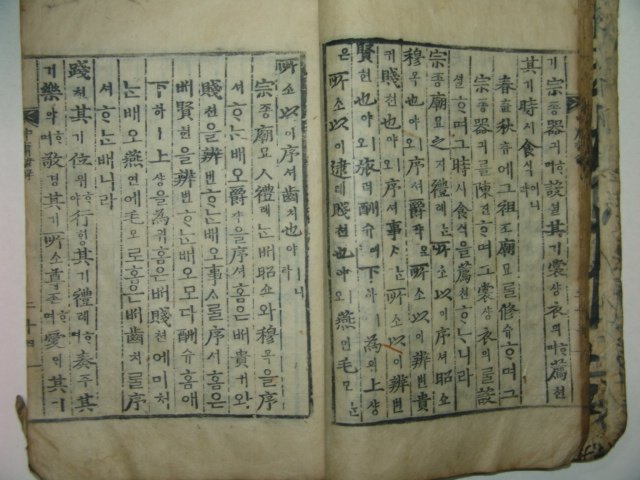 기宗종器긔ᄒᆞ며設셜其기裳샹衣의ᄒᆞ며薦쳔
其기時시食식이니라
春츈秋츄에그祖조廟묘ᄅᆞᆯ修슈ᄒᆞ며그
宗종器긔ᄅᆞᆯ陳진ᄒᆞ며그裳샹衣의ᄅᆞᆯ設
셜ᄒᆞ며그時시食식을薦쳔ᄒᆞᄂᆞ니라
宗종廟묘之지禮례ᄂᆞᆫ所소以이序셔昭쇼
穆목也야ㅣ오序셔爵쟉은所소以이辨변貴
귀賤쳔也야ㅣ오序셔事ᄉᆞᄂᆞᆫ所소以이辨변
賢현也야ㅣ오旅려酬슈에下하ㅣ爲위上샹
은所소以이逮톄賤쳔也야ㅣ오燕연毛모ᄂᆞᆫ
所소以이序셔齒치也야ㅣ니라
宗종廟묘ㅅ禮례ᄂᆞᆫ배昭쇼와穆목을序
셔ᄒᆞᄂᆞᆫ배오爵쟉을序셔홈은배貴귀와
賤쳔을辨변ᄒᆞᄂᆞᆫ배오事ᄉᆞᄅᆞᆯ序셔홈은
배賢현을辨변ᄒᆞᄂᆞᆫ배오모다酬슈홈애
下하ㅣ上샹을爲위홈은배賤쳔에미처
ᄂᆞᆫ배오燕연에毛모로홈은배齒치ᄅᆞᆯ序
셔ᄒᆞᄂᆞᆫ배니라
踐쳔其기位위ᄒᆞ야行ᄒᆡᆼ其기禮례ᄒᆞ며奏주其
기樂악ᄒᆞ며敬경其기所소尊존ᄒᆞ며愛ᄋᆡ其기
中庸諺解
二十四